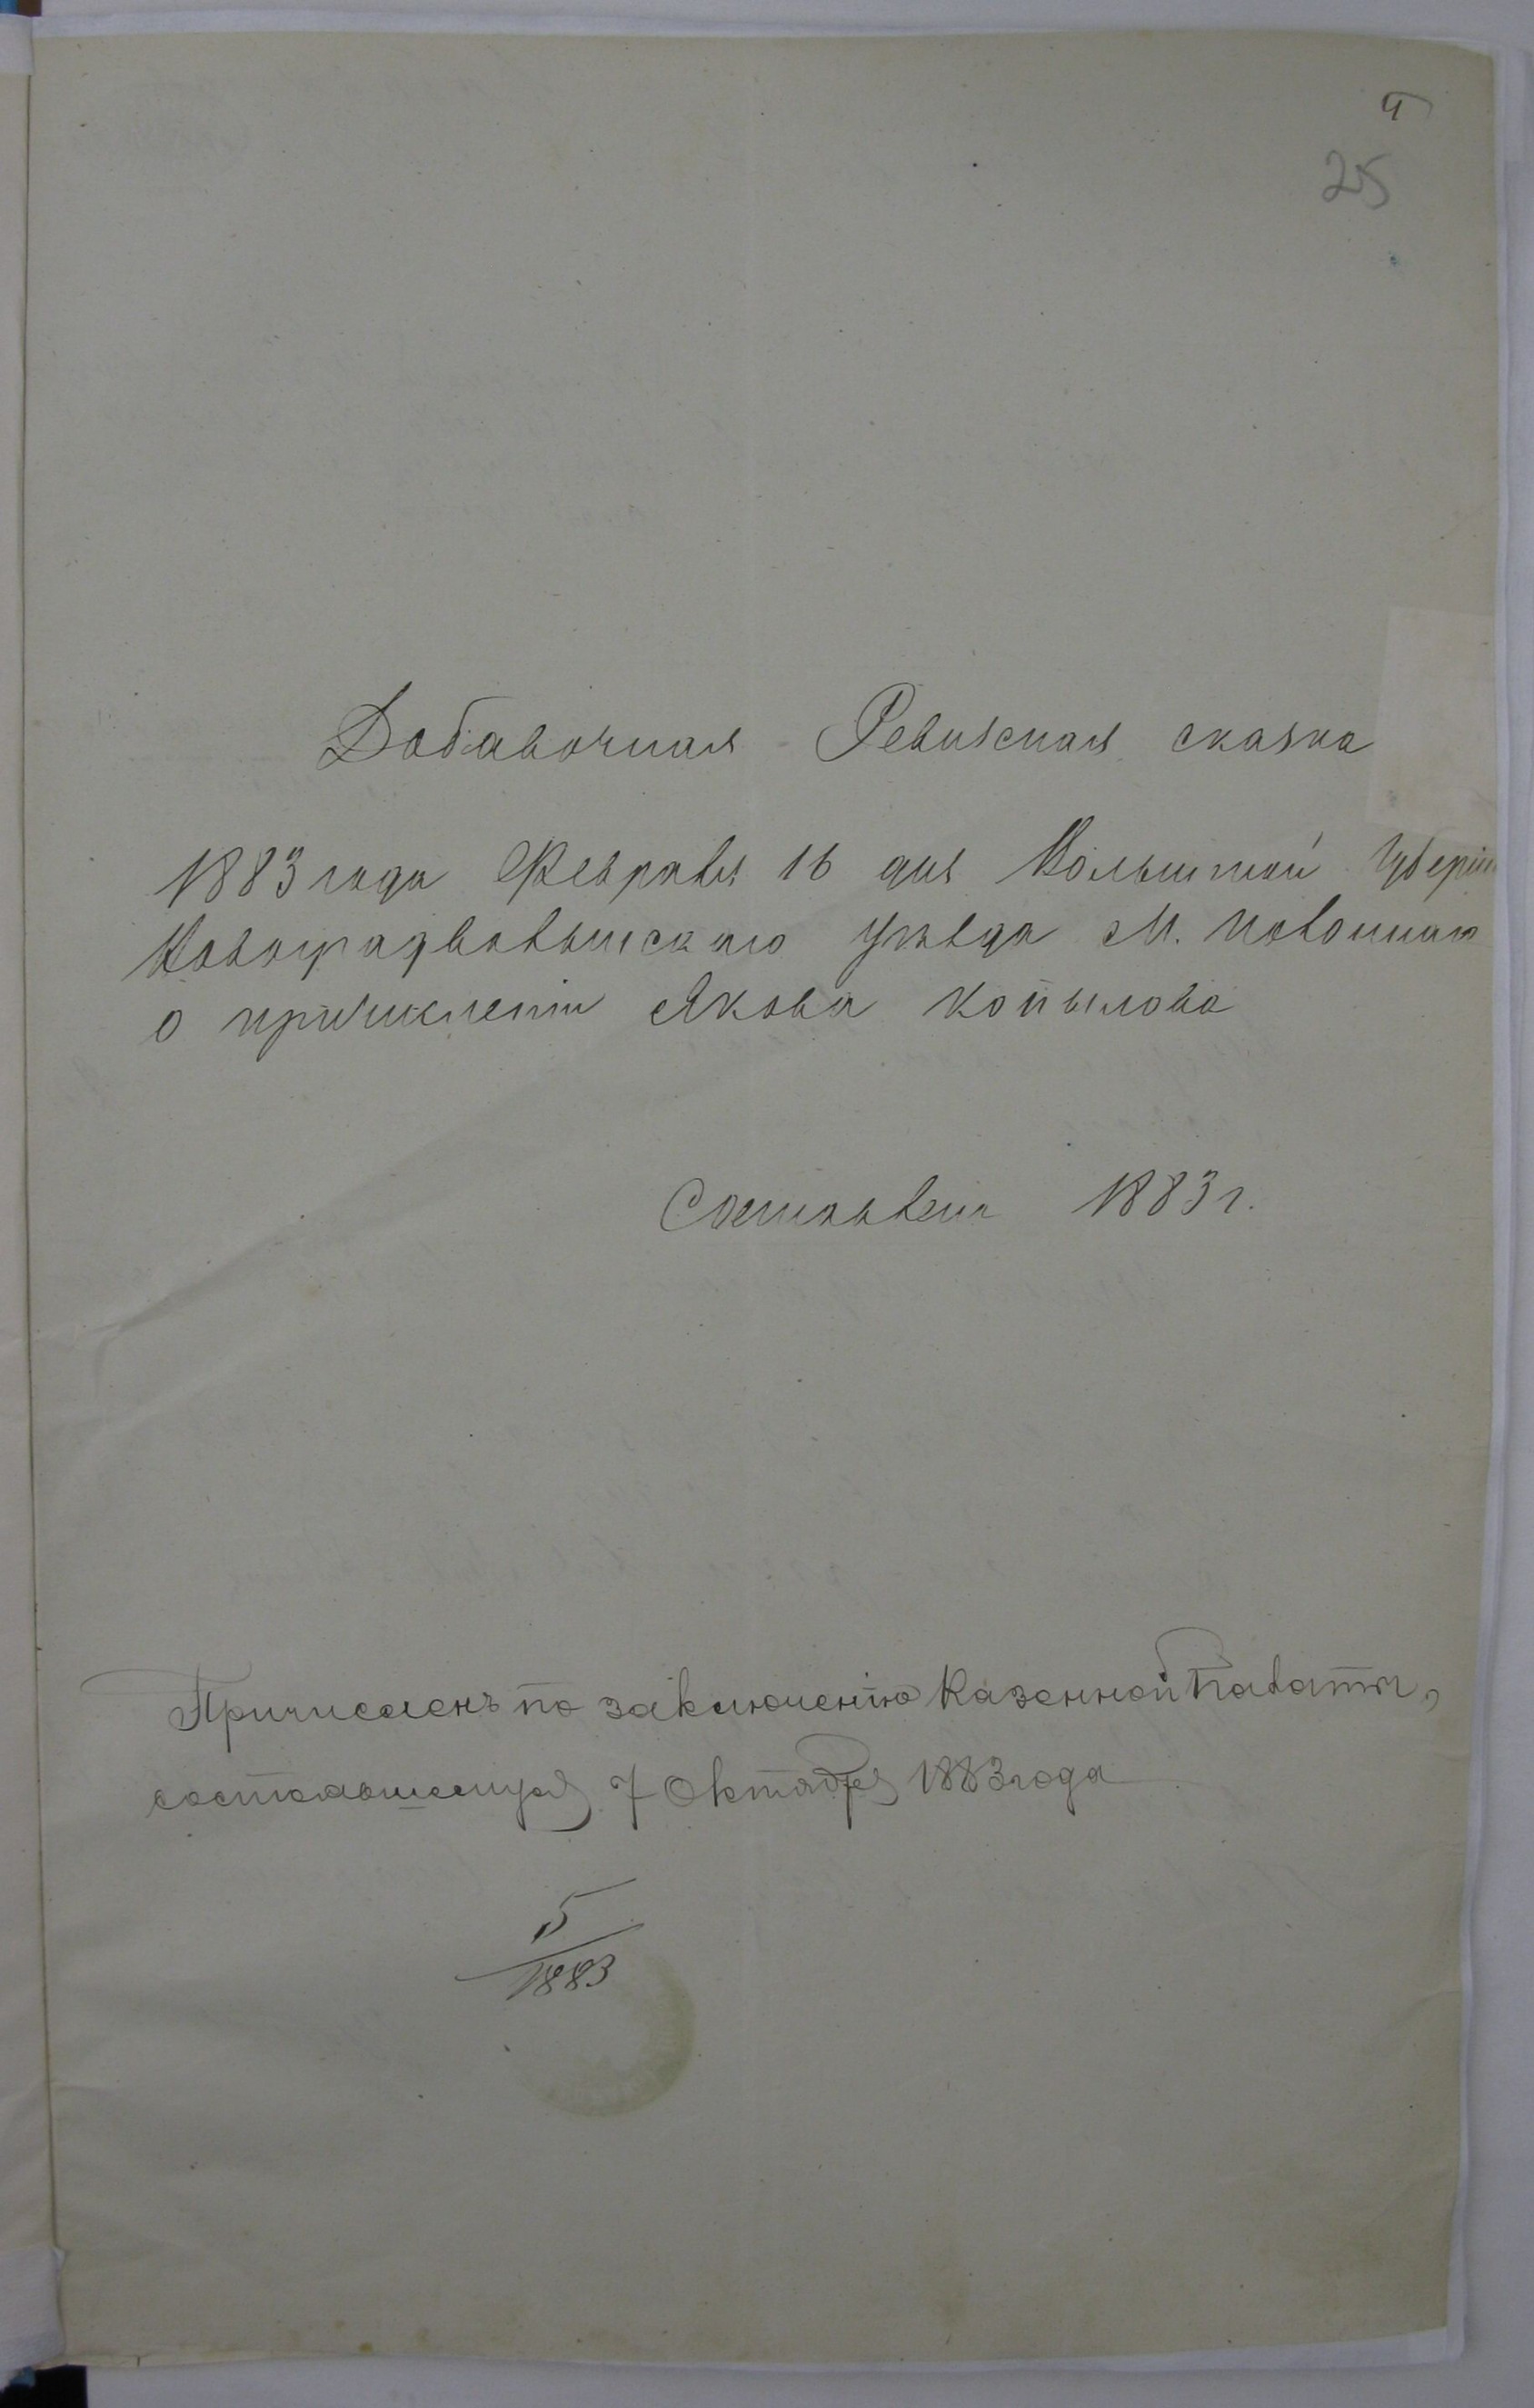 4
25
Добавочная Ревизская сказка
1883 года Февраля 16 дня Волынской Губерніи
Новоградволынскаго уѣзда М.
о причисленіи Якова Копылова
Составлена 1883 г.
Причисленъ по заключенію Казенной Палаты,
состоявшемуся 7 Октября 1883 года
5
1883